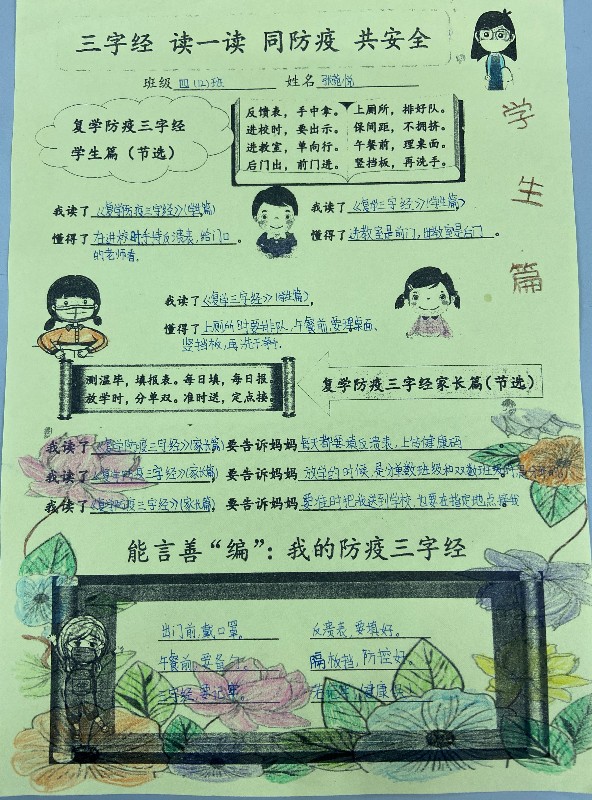 三字经 读一读 同防疫 共安全
班级 四(12)班 姓名
学生篇
复学防疫三字经
学生篇（节选）
反馈表，手中拿。 上厕所，排好队。
进校时，要出示。 保间距，不拥挤。
进教室，单向行。 午餐前，理桌面。
后门出，前门进。 竖挡板，再洗手。
我读了《复学防疫三字经》(学生篇)
懂得了在进校时手持反溃表，给门口的老师看。
我读了《复学三字经》(学生篇)
懂得了进教室是前门，出教室是后门。
我读了《复学三字经》(学生篇)，
懂得了上厕所时要排队，午餐前要理桌面、
竖挡板，再洗手。
测温毕，填报表。每日填，每日报。
放学时，分单双。准时送，定点接。
复学防疫三字经家长篇(节选)
我读了《复学防疫三字经》(家长篇) 要告诉妈妈每天都要填反溃表，上估健康码
我读了《复学防疫三字经》(家长篇) 要告诉妈妈放学的时候，是分单数班级和双数班级
我读了《复学防疫三字经》(家长篇) 要告诉妈妈要准时把我送到学校，也要在指定地点接我
能言善“编”：我的防疫三字经
出门前，戴口罩。 反溃表，要填好。
午餐前，要 隔板挡，防控好。
三字经，要记牢。 健康